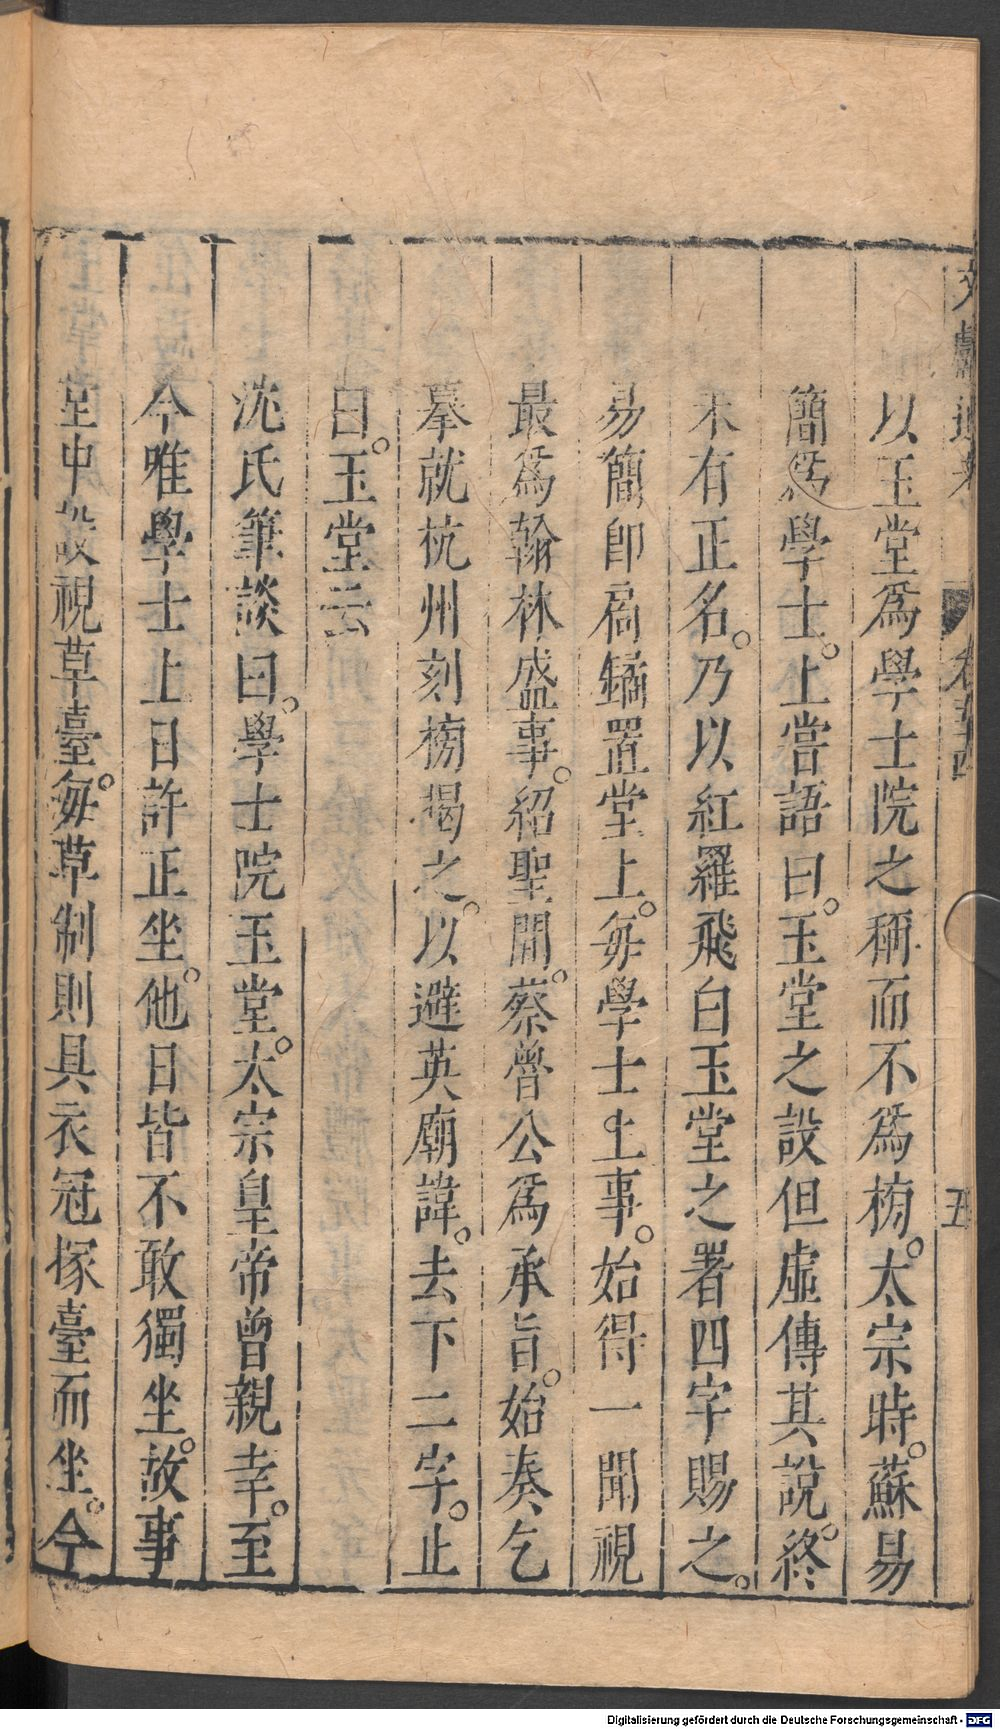 文獻通考 卷五十四 五
以玉堂爲學士院之稱而不爲榜。太宗時。蘇易
簡爲學士。上嘗語曰。玉堂之設但虛傳其說。終
未有正名。乃以紅羅飛白玉堂之署四字賜之。
易簡卽扃鐍置堂上。每學士上事。始得一開視
最爲翰林盛事。紹聖間。蔡魯公爲承旨。始奏乞
摹就杭州刻榜揭之。以避英廟諱。去下二字。止
曰。玉堂云
沈氏筆談曰。學士院玉堂。太宗皇帝曾親幸。至
今唯學士上日許正坐。他日皆不敢獨坐。故事
堂中設視草臺。每草制則具衣冠㨿臺而坐。今
Digitalisierung gefördert durch die Deutsche Forschungsgemeinschaft - DFG